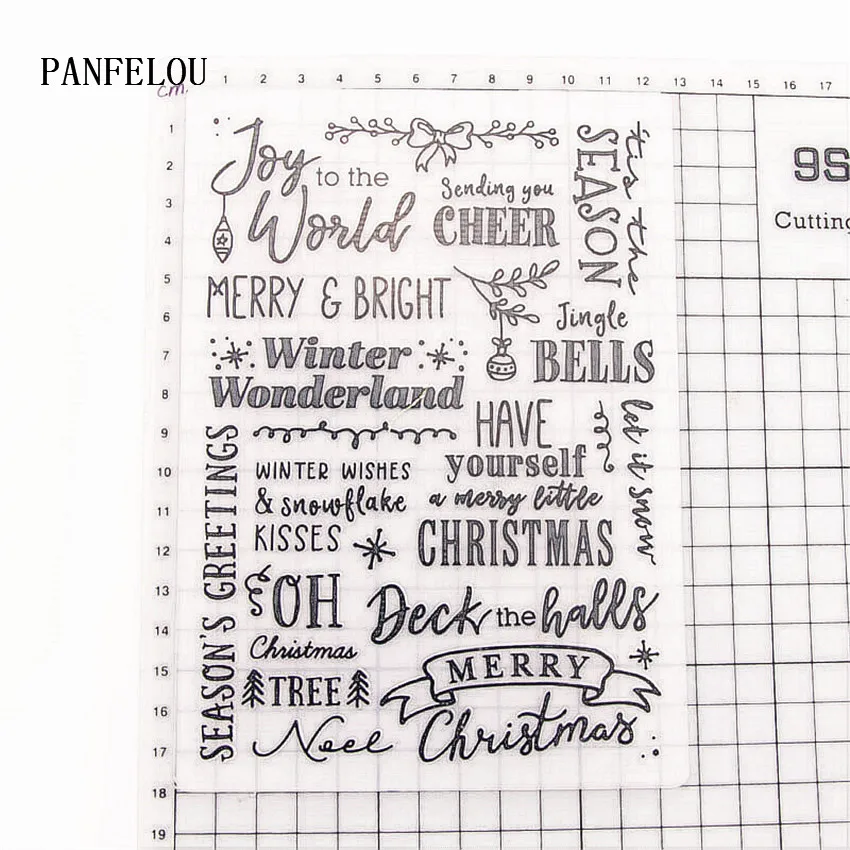 PANFELOU
cm.
1 2 3 4 5 6 7 8 9 10 11 12 13 14 15 16 17
1
2
3
4
5
6
7
8
9
10
11
12
13
14
15
16
17
18
19
Joy
to the
World
Sending you
CHEER
'tis the
SEASON
MERRY & BRIGHT
Jingle
BELLS
Winter
Wonderland
HAVE
yourself
a merry little
CHRISTMAS
let it snow
WINTER WISHES
& snowflake
KISSES
SEASON'S GREETINGS
OH
Christmas
TREE
Deck the halls
MERRY
Christmas
Noel
9S
Cutting